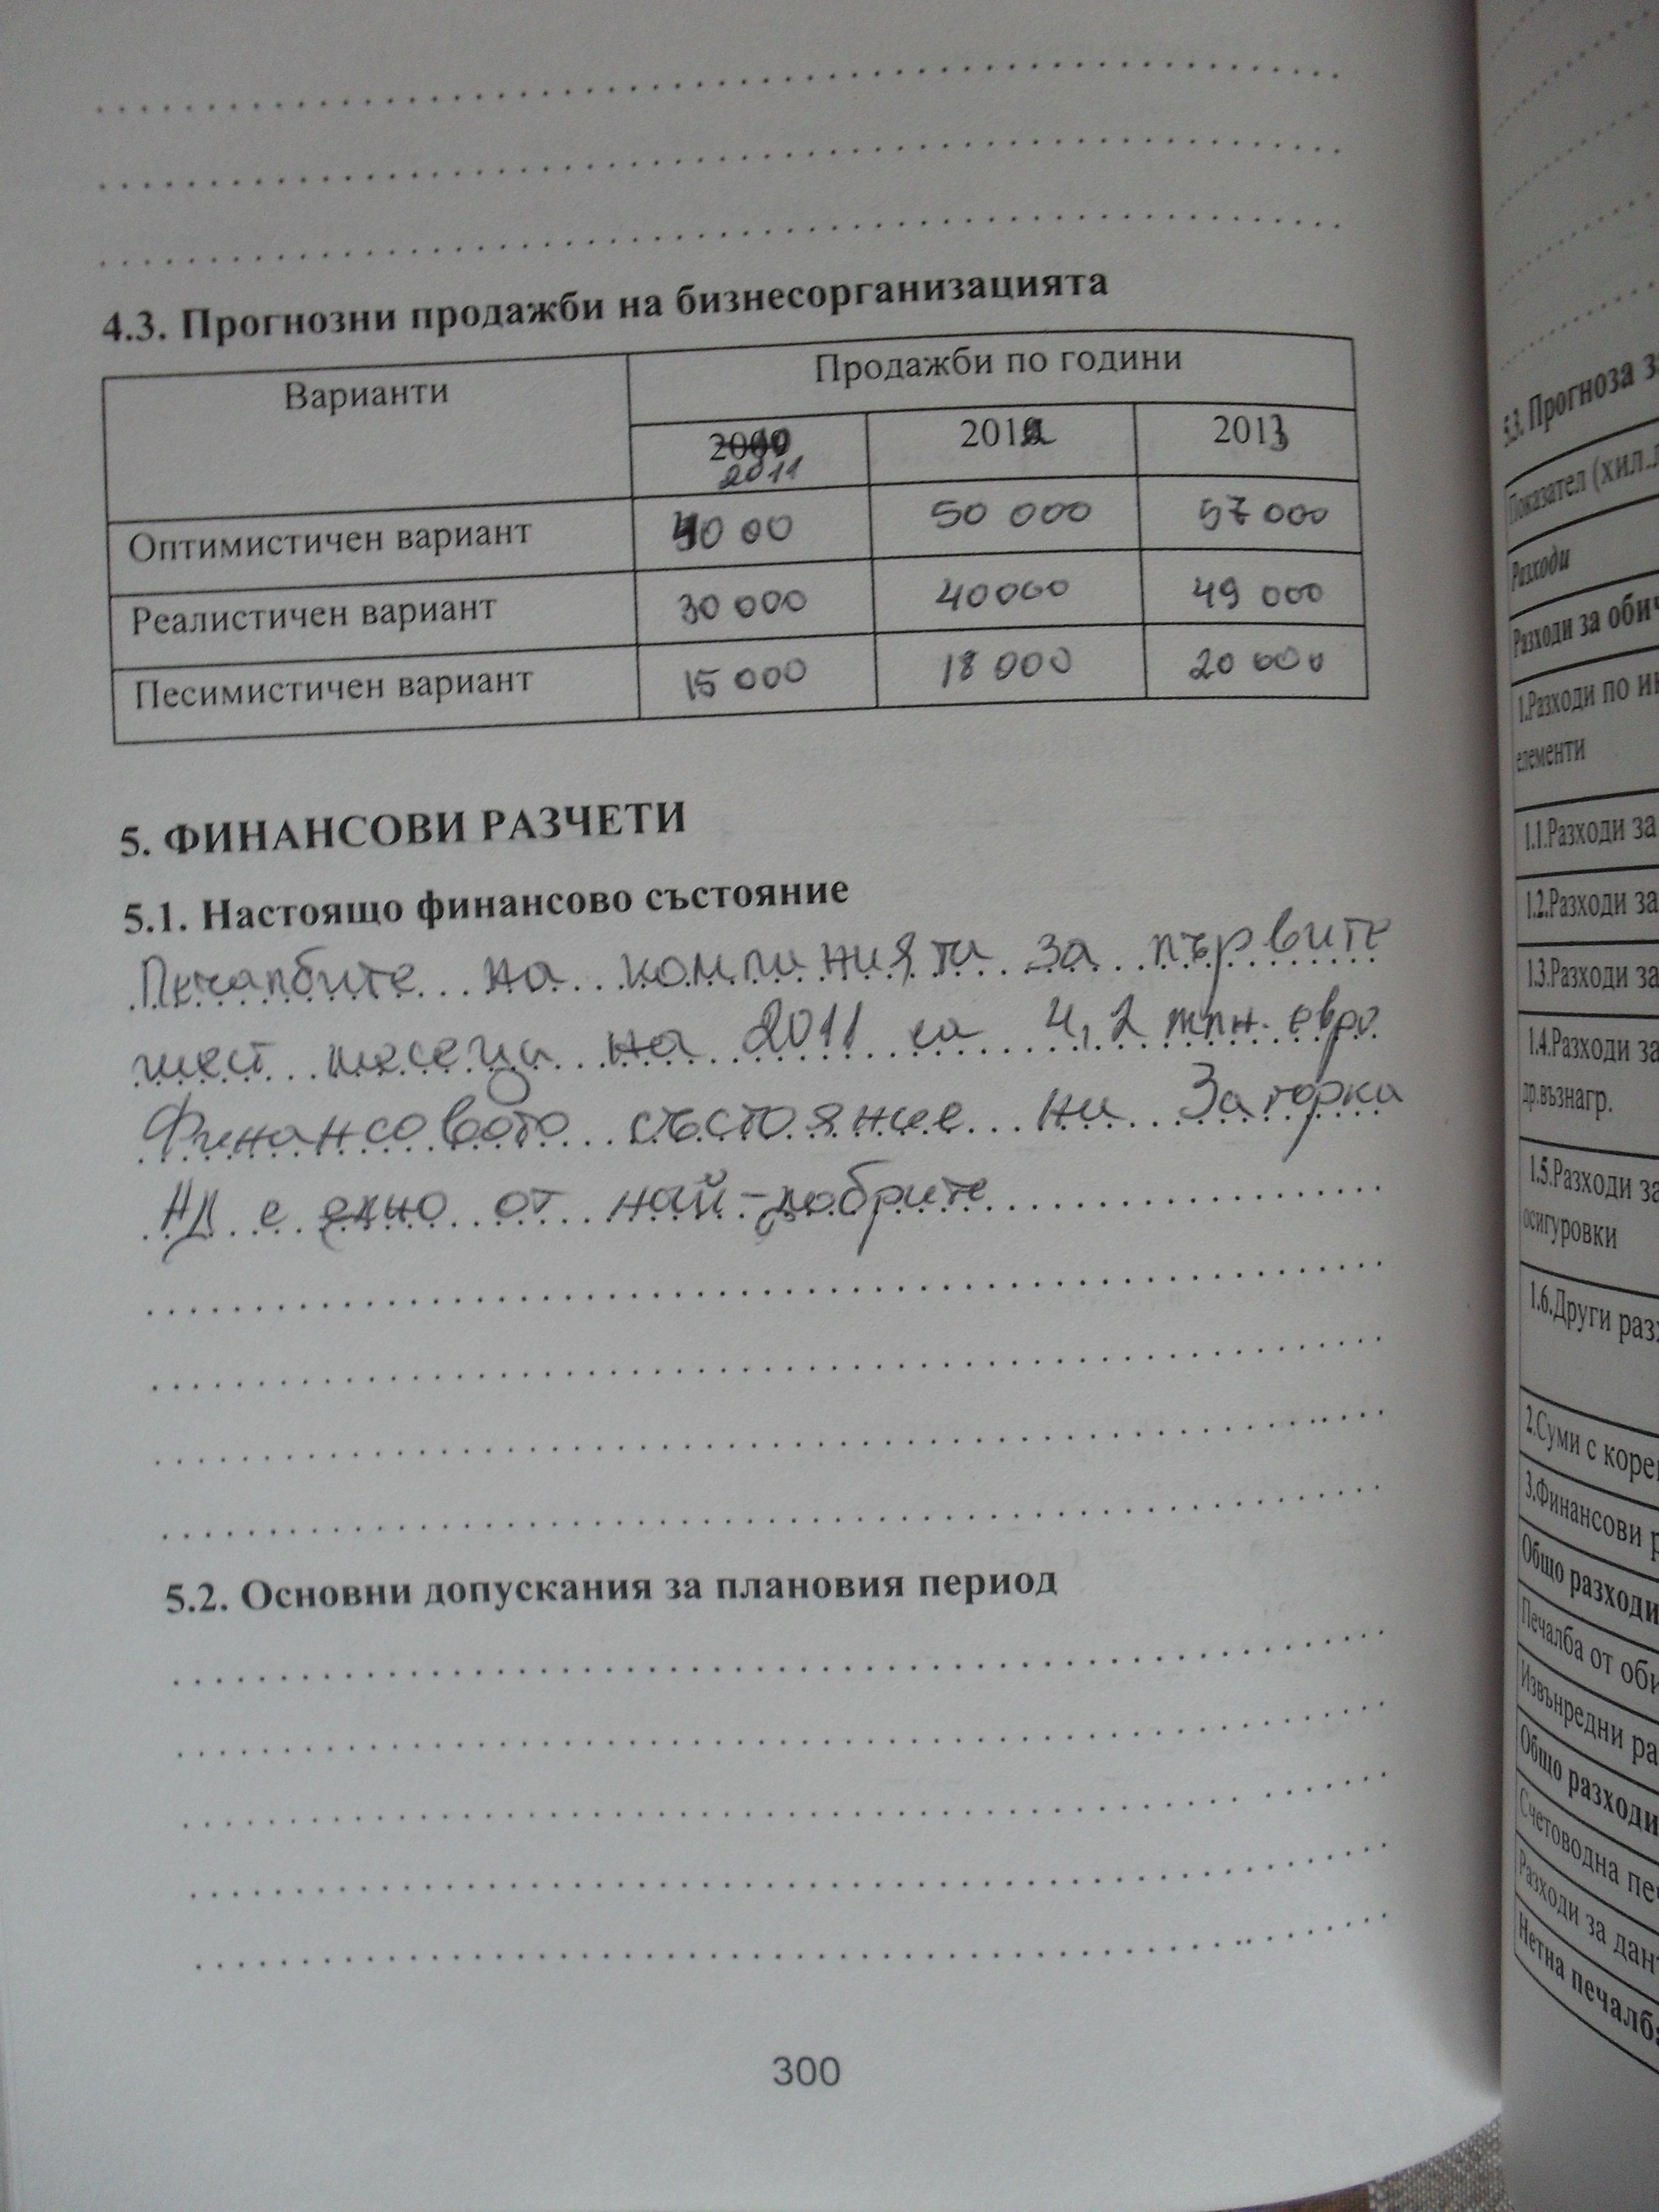 4.3. Прогнозни продажби на бизнесорганизацията
Варианти
Продажби по години
2011
2012
2013
Оптимистичен вариант
4000
50 000
57 000
Реалистичен вариант
30 000
40000
49 000
Песимистичен вариант
15 000
18 000
20 000
5. ФИНАНСОВИ РАЗЧЕТИ
5.1. Настоящо финансово състояние
Печалбите на компанията за първите
шест месеци на 2011 са 4,2 млн. евро
Финансовото състояние на Загорка
АД е едно от най-добрите
5.2. Основни допускания за плановия период
300
5.3. Прогноза
Показател (хил.
Разходи
Разходи за оби
1.Разходи по
елементи
1.1.Разходи за
1.2.Разходи за
1.3.Разходи за
1.4.Разходи за
др.възнагр.
1.5.Разходи за
осигуровки
1.6.Други раз
2.Суми с коре
3.Финансови р
Общо разходи
Печалба от оби
Извънредни ра
Общо разходи
Счетоводна пе
Разходи за дан
Нетна печалба